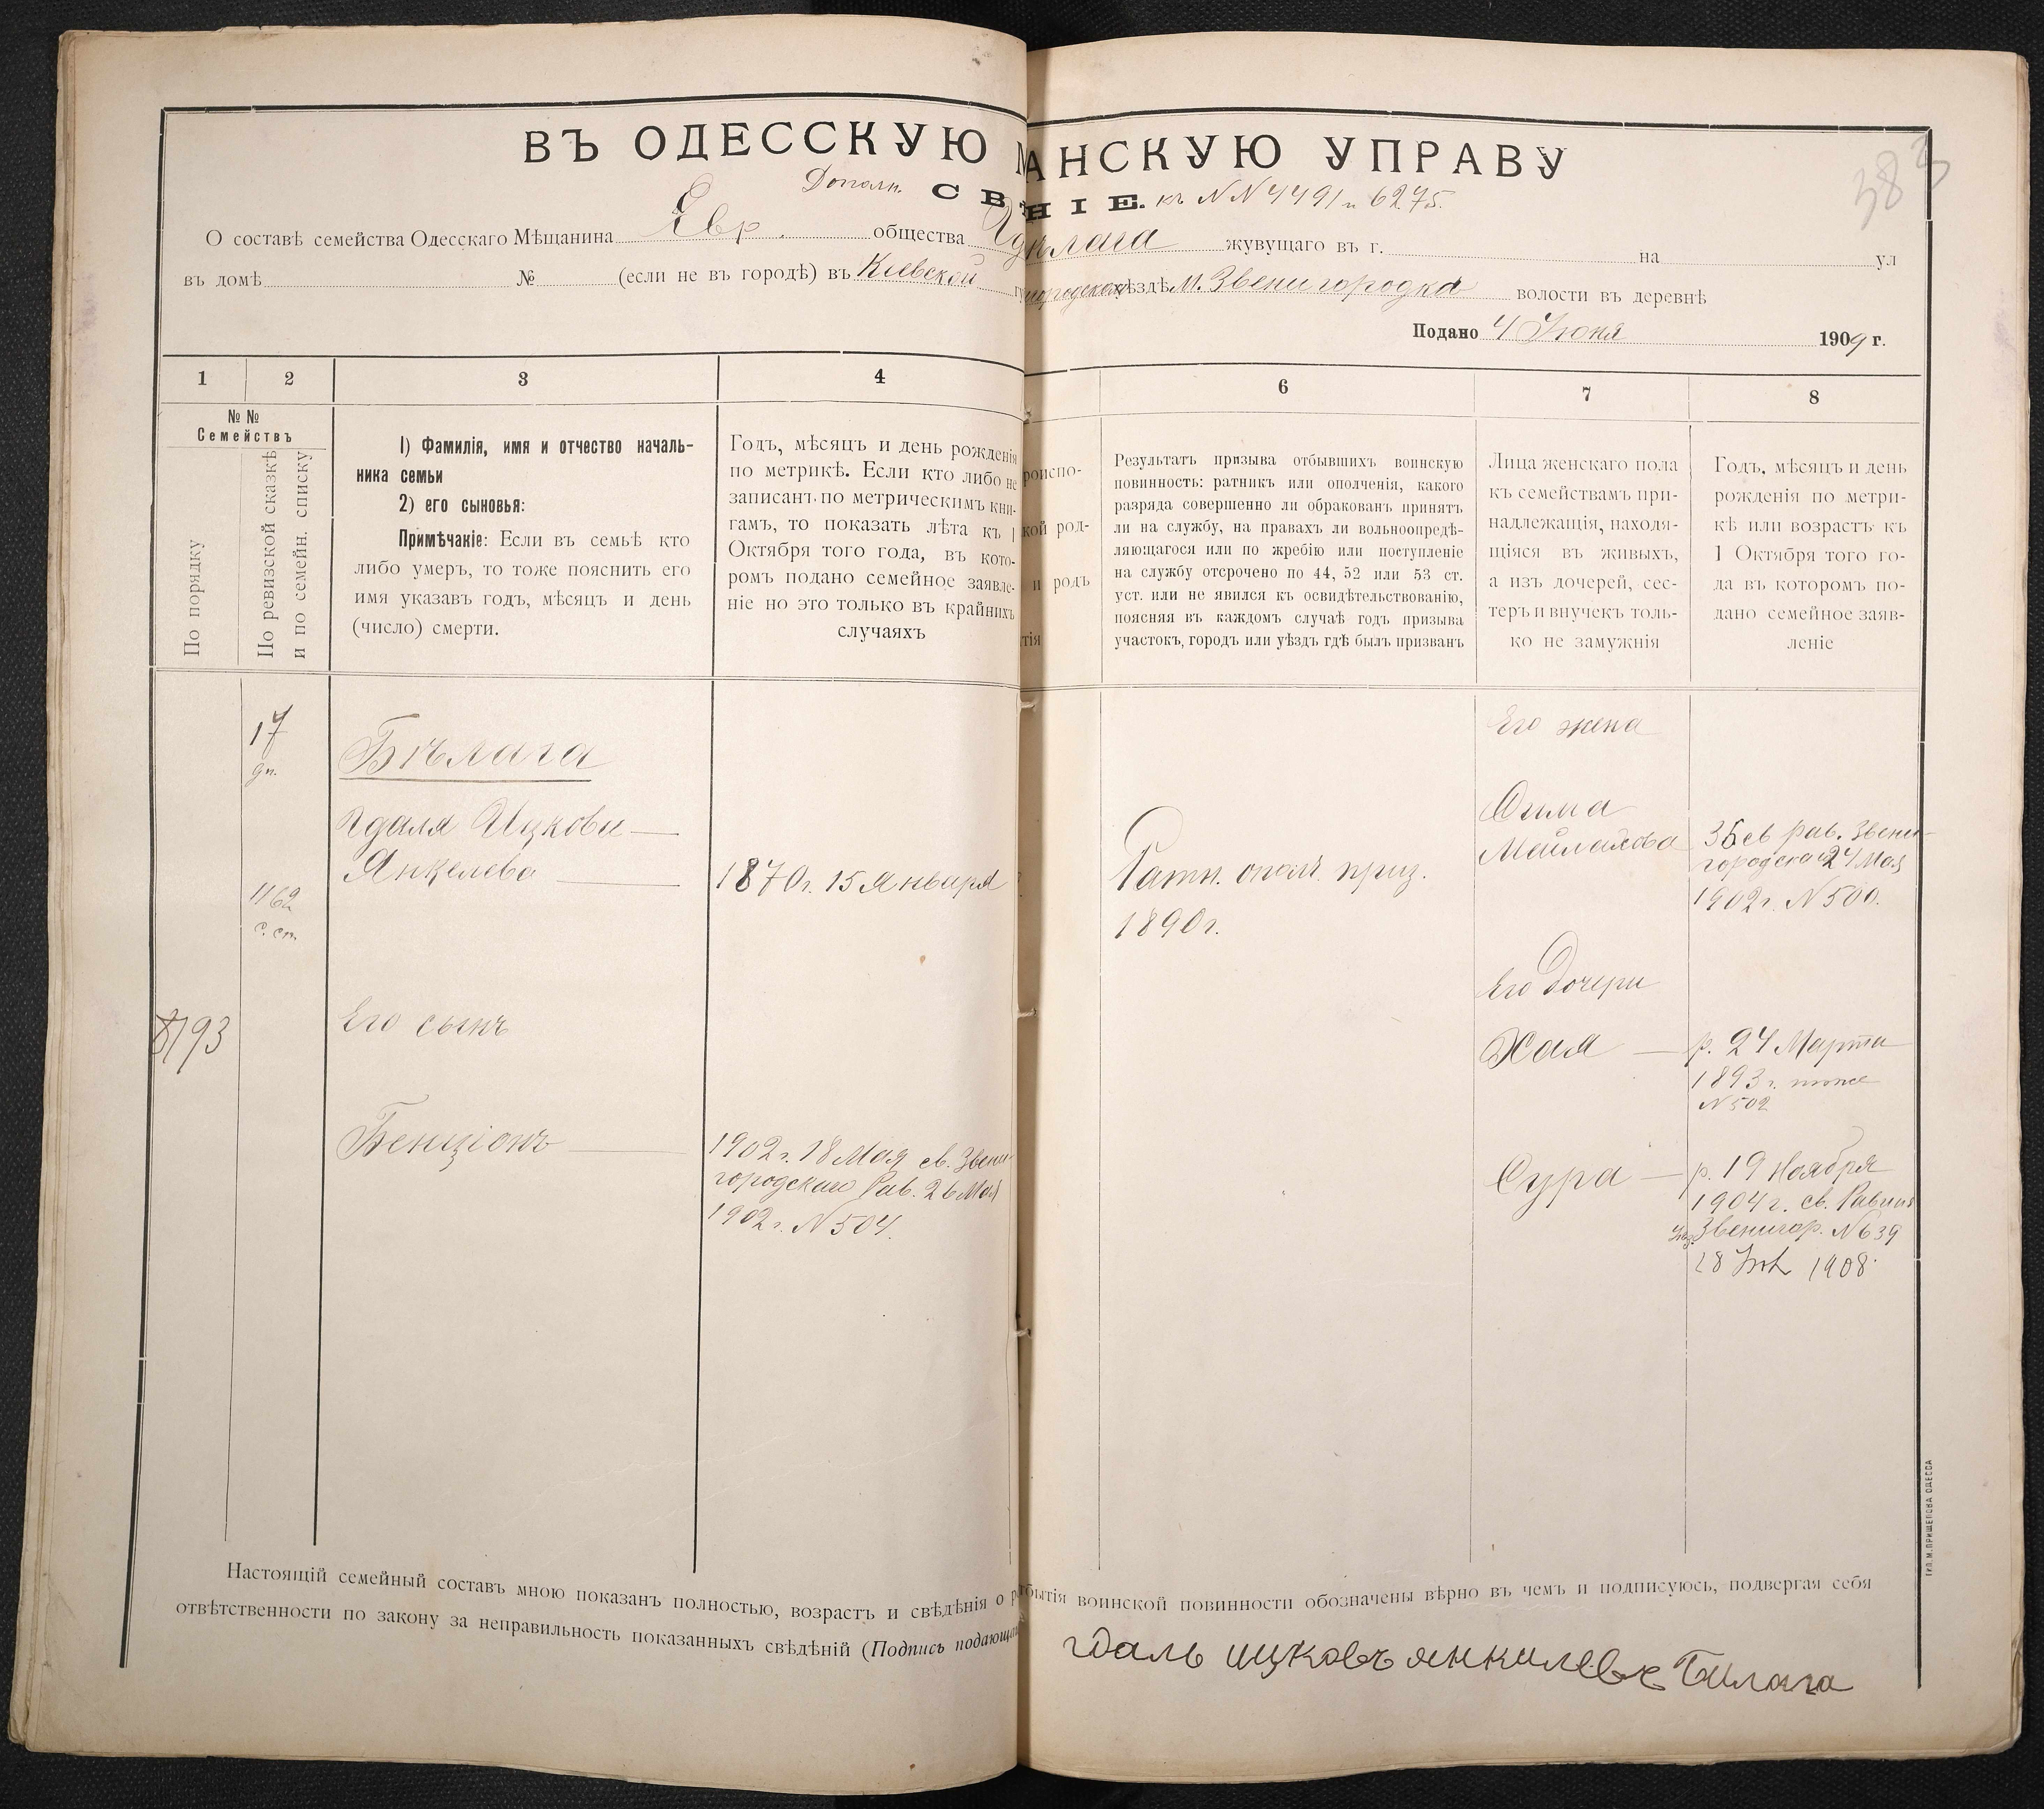 ВЪ ОДЕССКУЮ АНСКУЮ УПРАВУ
Дополн. СВ НІЕ. къ NN 4491 и 6275.
383
О составѣ семейства Одесскаго Мѣщанина Евр. общества жувущаго въ г. на ул
въ домѣ № (если не въ городѣ) въ Кіевской уѣздѣ М. Звенигородка волости въ деревнѣ
Подано 4 Іюня 1909 г.
1 2 3 4 6 7 8
№ №
Семействъ
По порядку
По ревизской сказкѣ
и по семейн. списку
1) Фамилія, имя и отчество началь-
ника семьи
2) его сыновья:
Примѣчаніе: Если въ семьѣ кто
либо умеръ, то тоже пояснить его
имя указавъ годъ, мѣсяцъ и день
(число) смерти.
Годъ, мѣсяцъ и день рожденія
по метрикѣ. Если кто либо не
записанъ по метрическимъ кни-
гамъ, то показать лѣта къ 1
Октября того года, въ кото-
ромъ подано семейное заявле-
ніе но это только въ крайнихъ
случаяхъ
роиспо-
кой род-
и родъ
тія
Результатъ призыва отбывшихъ воинскую
повинность: ратникъ или ополченія, какого
разряда совершенно ли обракованъ принятъ
ли на службу, на правахъ ли вольноопредѣ-
ляющагося или по жребію или поступленіе
на службу отсрочено по 44, 52 или 53 ст.
уст. или не явился къ освидѣтельствованію,
поясняя въ каждомъ случаѣ годъ призыва
участокъ, городъ или уѣздъ гдѣ былъ призванъ
Лица женскаго пола
къ семействамъ при-
надлежащія, находя-
щіяся въ живыхъ,
а изъ дочерей, сес-
теръ и внучекъ толь-
ко не замужнія
Годъ, мѣсяцъ и день
рожденія по метри-
кѣ или возрастъ къ
1 Октября того го-
да въ которомъ по-
дано семейное заяв-
леніе
17
дп.
Бѣлага
Гдаля Ицкови—
Янкелево —
1162
с. сп.
1870г. 15 Января
Ратн. ополч. приз.
1890г.
Его жена
Сима
Майлахова
36 св рав. Звени-
городскаго 24 Мая
1902г. N500.
8793
Его сынъ
Бенціонъ —
1902г. 18 Мая св. Звени-
городскаго Рав. 26 Мая
1902г. N504.
Его дочери
Хая —
р. 24 Марта
1893г. тоже
N502
Сура —
р. 19 Ноября
1904г. св. Равина
Звенигор. N639
28 1908.
Настоящій семейный составъ мною показанъ полностью, возрастъ и свѣдѣнія о бытія воинской повинности обозначены вѣрно въ чемъ и подписуюсь, подвергая себя
отвѣтственности по закону за неправильность показанныхъ свѣдѣній (Подпись подающаго
гдаль ицковъ янкилевъ Билага
ТИП. М. ПРИЩЕПОВА ОДЕССА